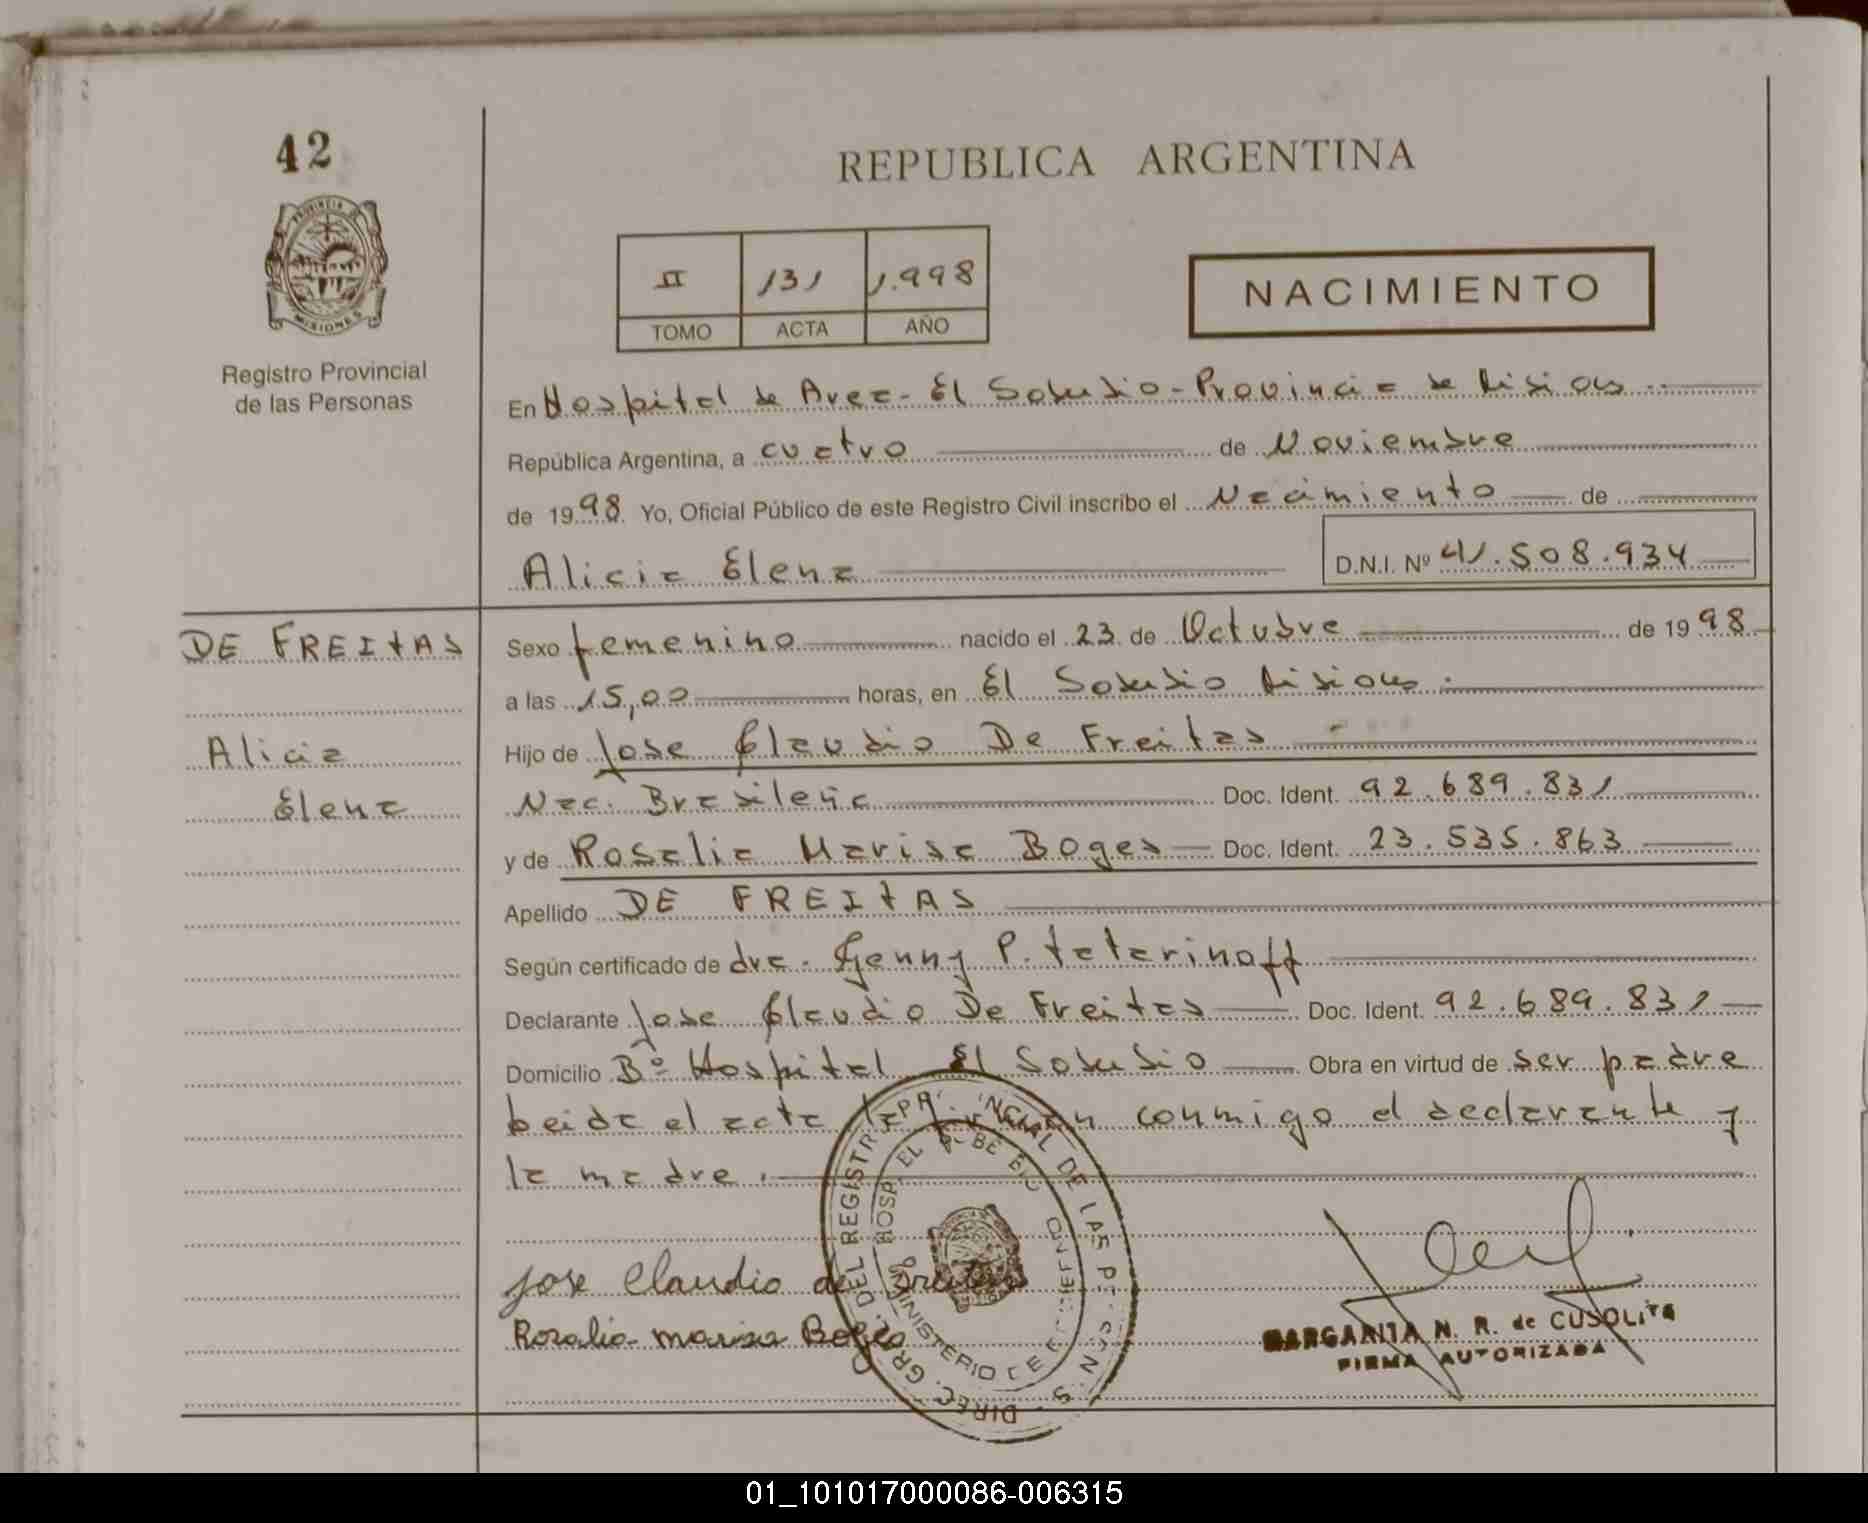 42
REPUBLICA ARGENTINA
PROVINCIA DE
MISIONES
Registro Provincial
de las Personas
II 131 1.998
TOMO ACTA AÑO
NACIMIENTO
En Hospital de Area - El Soberbio - Provincia de Misiones
República Argentina, a cuatro de Noviembre
de 1998. Yo, Oficial Público de este Registro Civil inscribo el Nacimiento de
Alicia Elena D.N.I. Nº 41.508.934
DE FREITAS
Alicia
Elena
Sexo femenino nacido el 23 de Octubre de 1998
a las 15,00 horas, en El Soberbio Misiones
Hijo de Jose Claudio De Freitas
Nac. Brasileña Doc. Ident. 92.689.831
y de Rosalia Marisa Boges Doc. Ident. 23.535.863
Apellido DE FREITAS
Según certificado de dra. Genny P. tatarinoff
Declarante Jose Claudio De Freitas Doc. Ident. 92.689.831
Domicilio Bº Hospital El Soberbio Obra en virtud de ser padre
Leida el acta la firman conmigo el declarante y
la madre.
Jose Claudio de Freitas
Rosalia marisa Boges
DIREC. GRAL. DEL REGISTRO PROVINCIAL DE LAS PERSONAS
HOSP. EL SOBERBIO
MINISTERIO DE GOBIERNO
MARGARITA N. R. de CUSOLITO
FIRMA AUTORIZADA
01_101017000086-006315